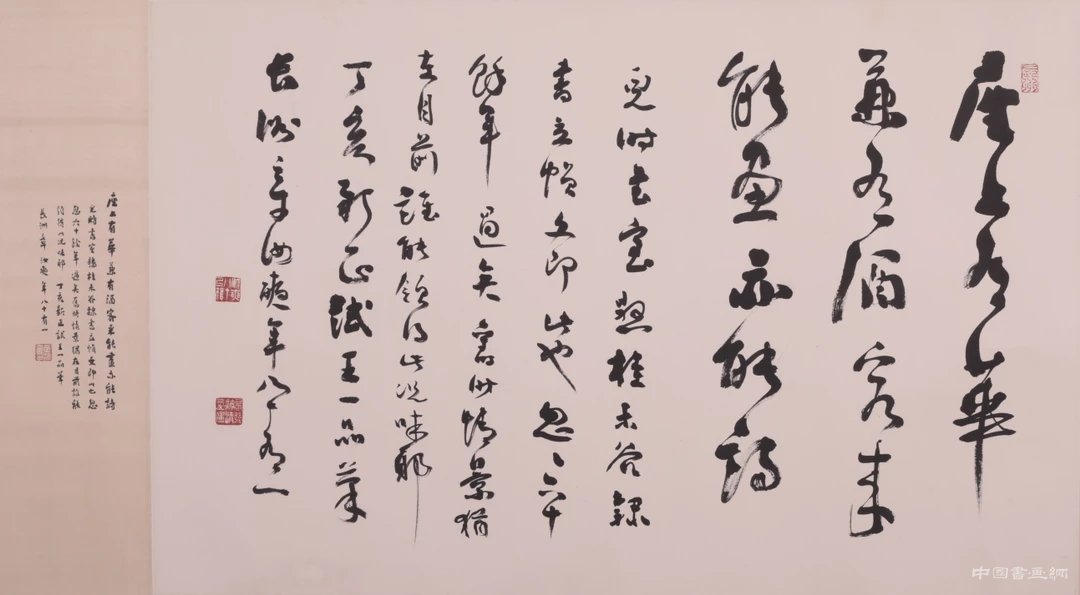 座上有華
兼有酒客来
能畫亦能詩
兒时書室懸桂未谷隸
書立幀文即此也忽忽六十
餘年過矣舊时情景猶
在目前誰能領得此況味耶
丁亥新正試王一品筆
長洲章汝奭年八十有一
座上有華兼有酒客来能畫亦能詩
兒時書室懸桂未谷隸書立幀文即此也忽
忽六十餘年過矣舊時情景猶在目前誰能
領得此況味耶 丁亥新正試王一品筆
長洲章汝奭年八十有一
中国書画網